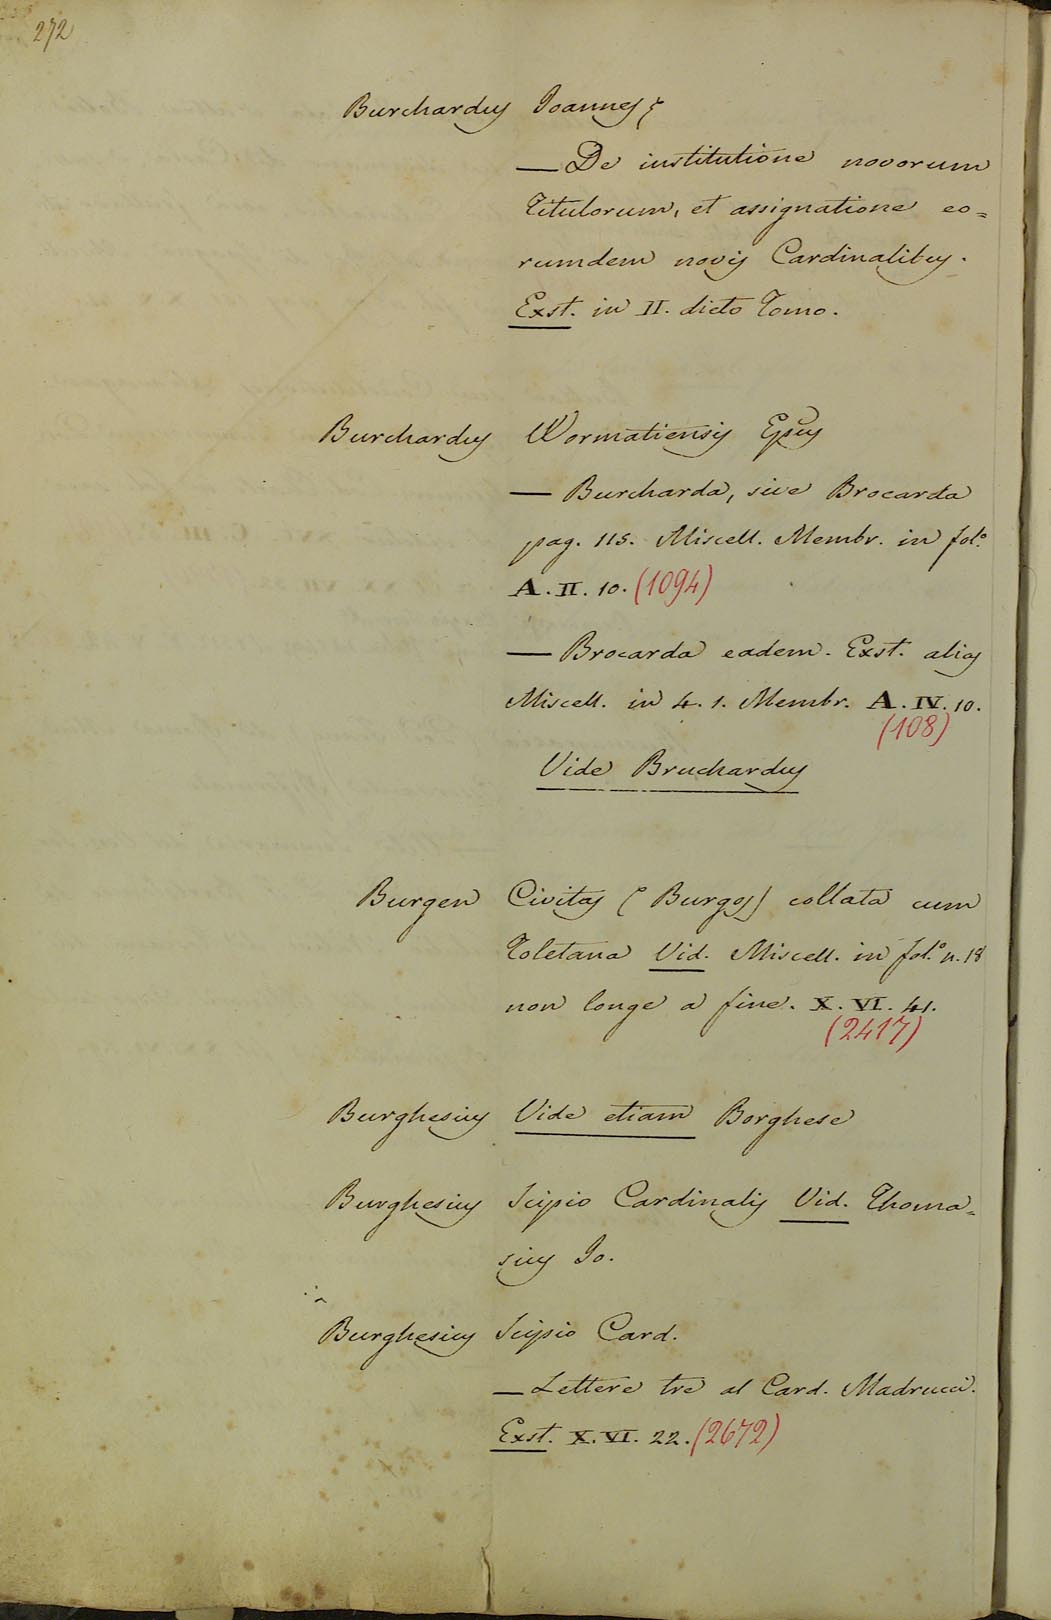 272
Burchardus Joannes
— De institutione novorum
Titulorum, et assignatione eo=
rumdem novis Cardinalibus.
Exst. in II. dicto Tomo.
Burchardus Wormatiensis Epus
— Burcharda, sive Brocarda
pag. 115. Miscell. Membr. in fol.º
A. II. 10. (1094)
— Brocarda eadem. Exst. alias
Miscell. in 4. 1. Membr. A. IV. 10.
(108)
Vide Bruchardus
Burgen Civitas (Burgos) collata cum
Toletana Vid. Miscell. in fol.º n. 18
non longe a fine. X. VI. 41.
(2417)
Burghesius Vide etiam Borghese
Burghesius Scipio Cardinalis Vid. Thoma=
sius Jo.
Burghesius Scipio Card.
— Lettere tre al Card. Madrucci.
Exst. X. VI. 22. (2672)